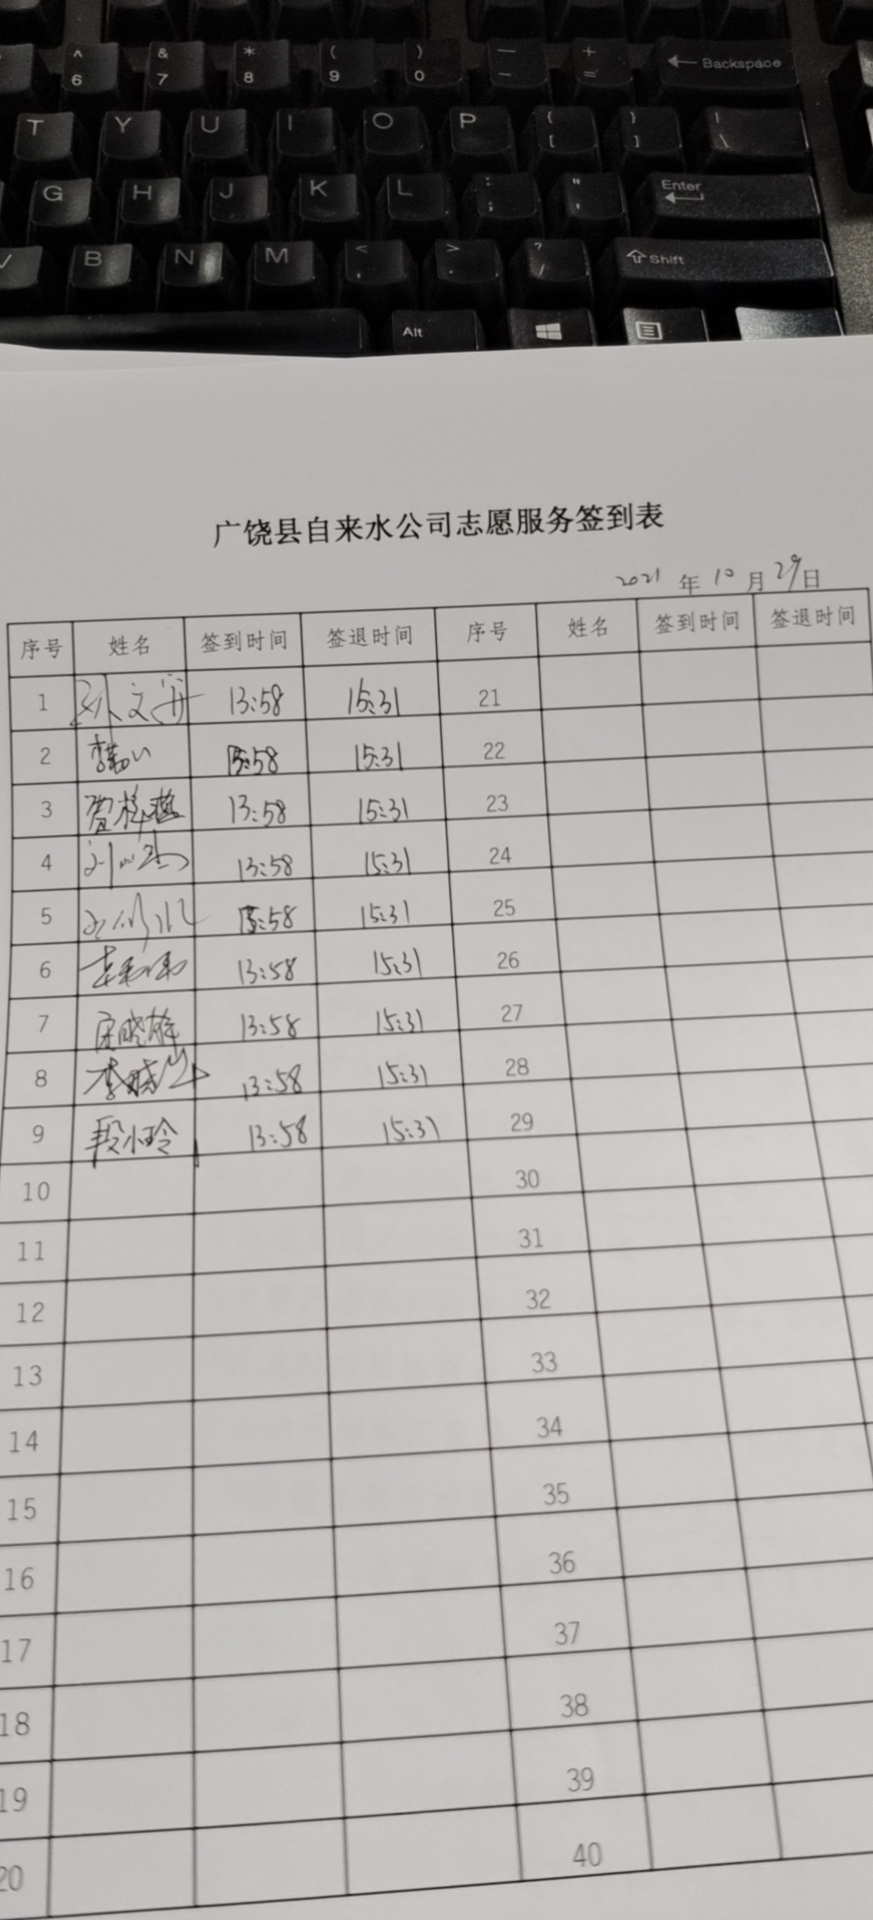 ^ & * ( ) — +
6 7 8 9 0 - = Backspace
T Y U I O P { } |
[ ] \
G H J K L : " Enter
; '
V B N M < > ? Shift
, . /
Alt
广饶县自来水公司志愿服务签到表
2021 年 10 月 29 日
序号 姓名 签到时间 签退时间 序号 姓名 签到时间 签退时间
1 13:58 15:31 21
2 13:58 15:31 22
3 13:58 15:31 23
4 13:58 15:31 24
5 13:58 15:31 25
6 13:58 15:31 26
7 宋晓雄 13:58 15:31 27
8 13:58 15:31 28
9 段小玲 13:58 15:31 29
10 30
11 31
12 32
13 33
14 34
15 35
16 36
17 37
18 38
19 39
20 40